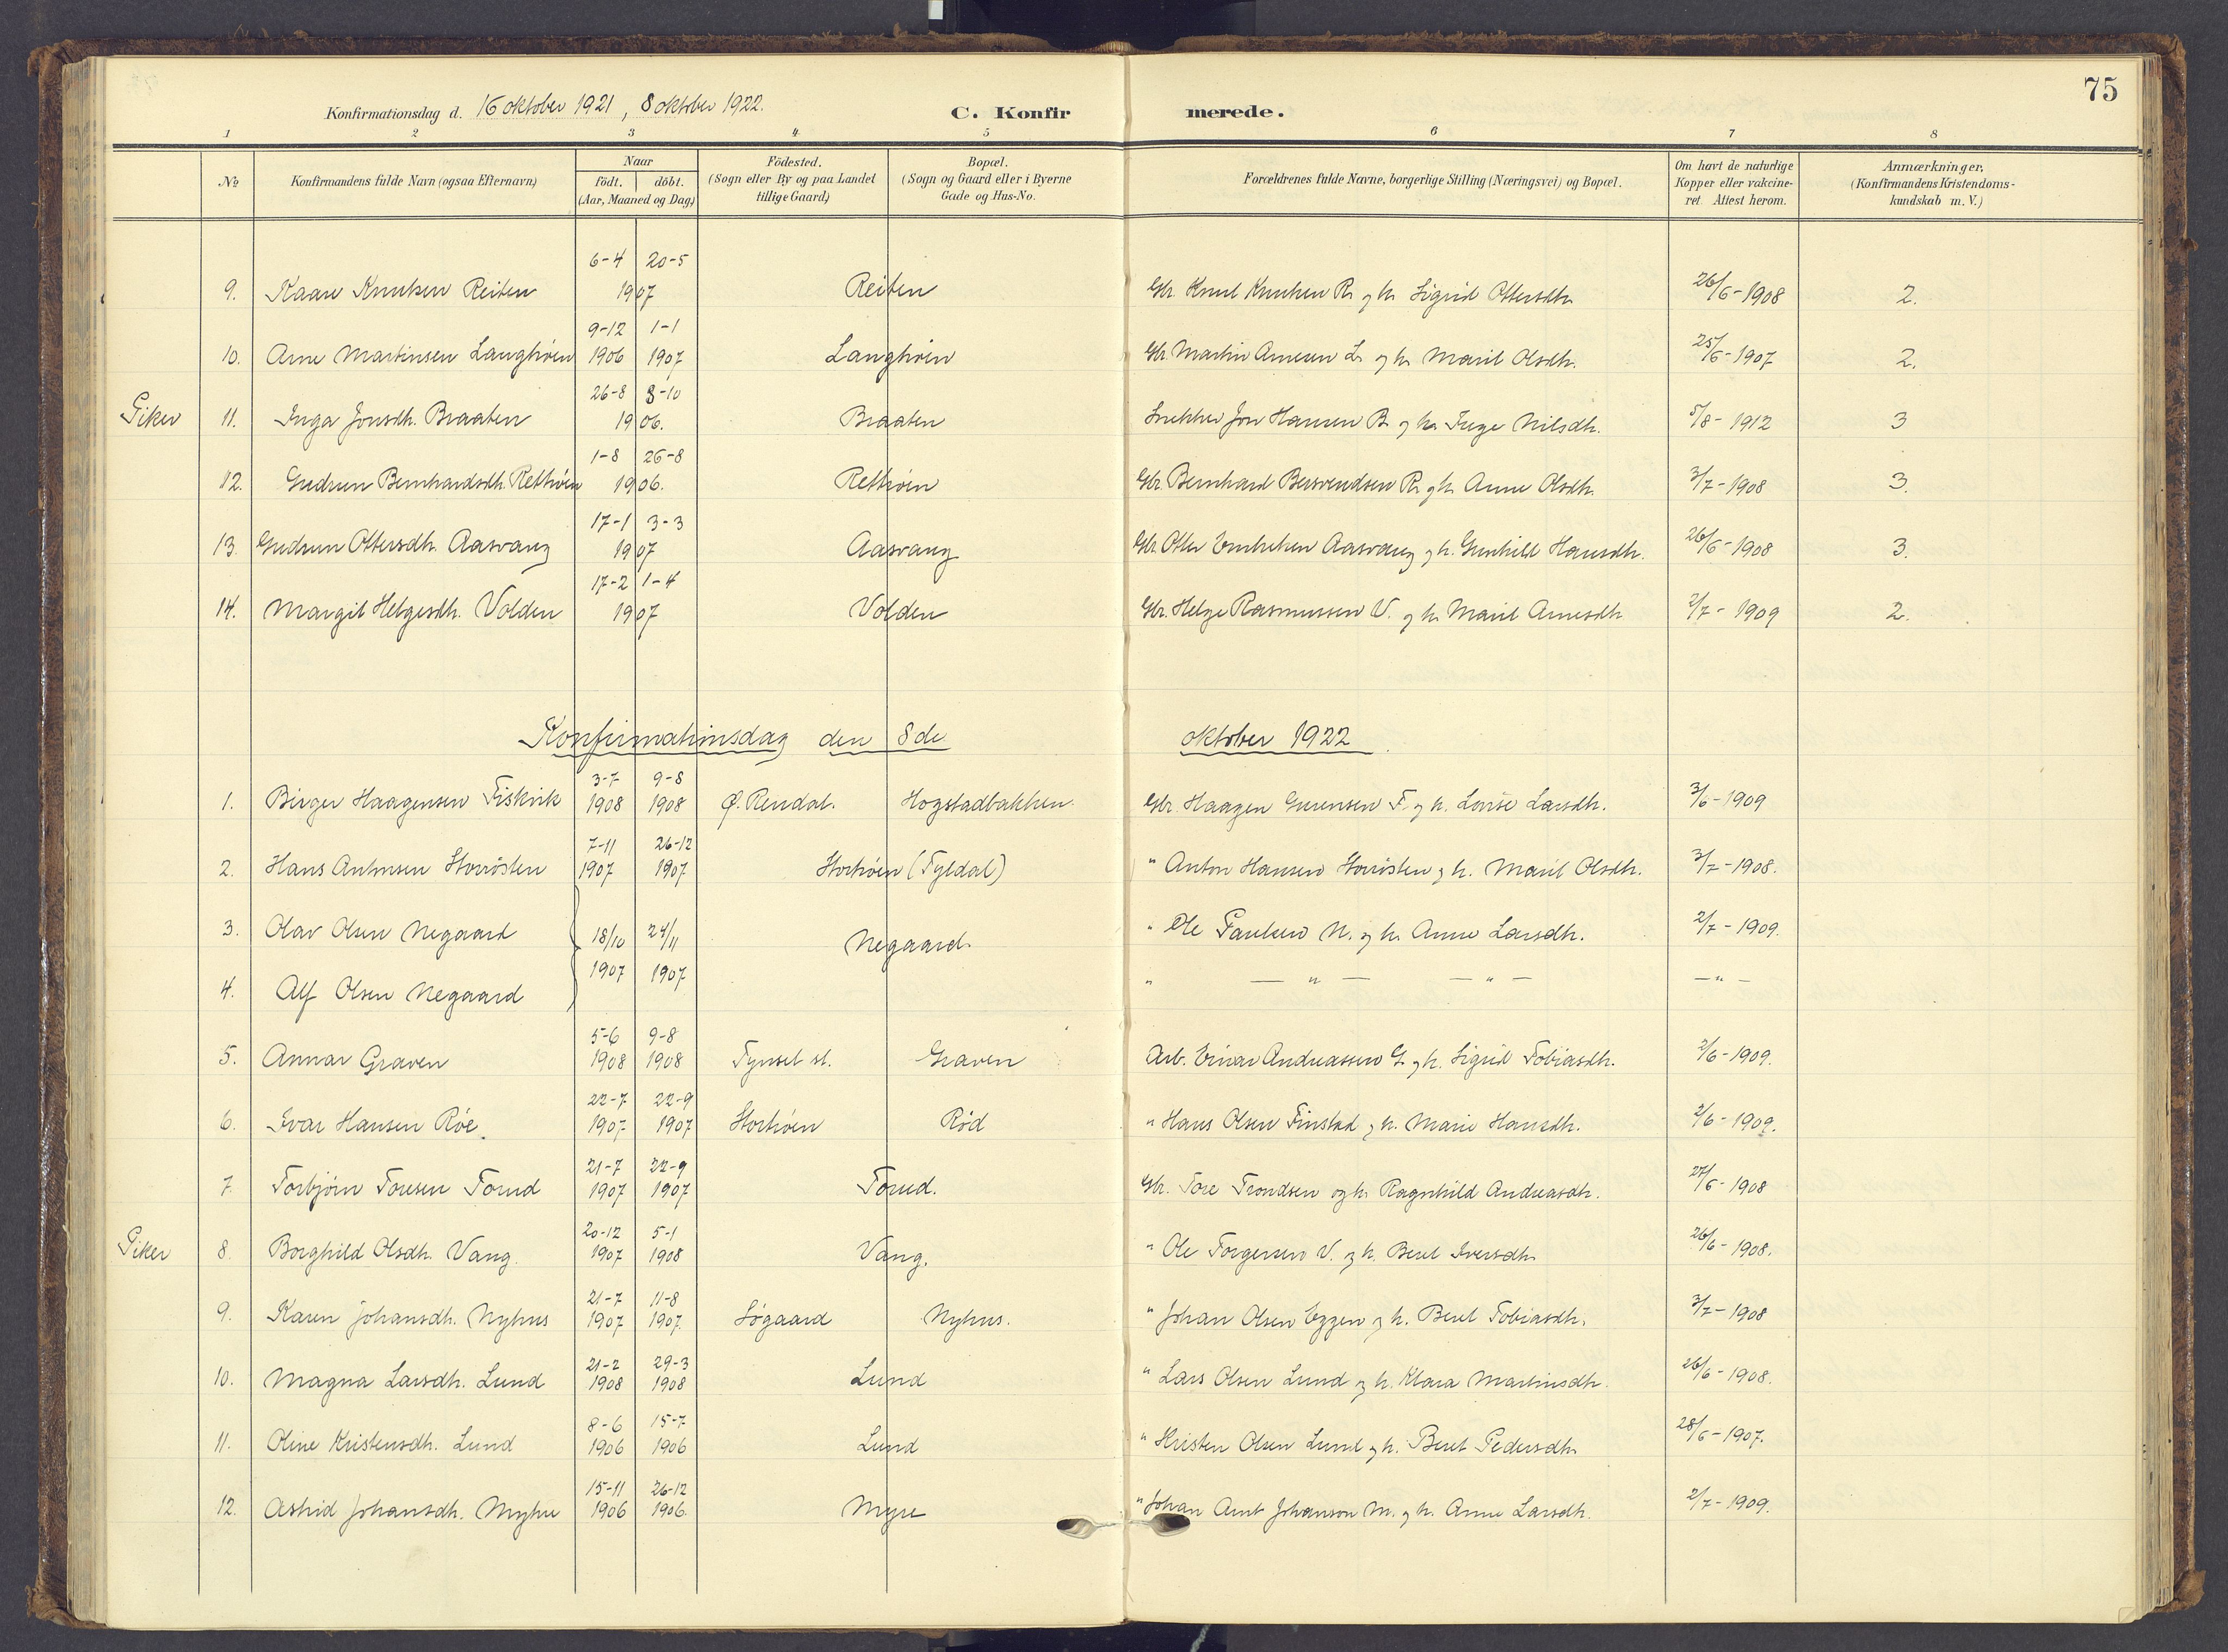 75
Konfirmationsdag d. 16 oktober 1921, 8 oktober 1922.
C. Konfirmerede.
1 2 3 4 5 6 7 8
No
Konfirmandens fulde Navn (ogsaa Efternavn)
Naar
födt. döbt.
(Aar, Maaned og Dag)
Födested.
(Sogn eller By og paa Landet
tillige Gaard)
Bopæl.
(Sogn og Gaard eller i Byerne
Gade og Hus-No.
Forældrenes fulde Navne, borgerlige Stilling (Næringsvei) og Bopæl.
Om havt de naturlige
Kopper eller vakcine-
ret. Attest herom.
Anmærkninger.
(Konfirmandens Kristendoms-
kundskab m. V.)
6-4 20-5
9. Kaare Knutsen Reiten 1907 Reiten Gbr. Knut Knutsen R. og h. Sigrid Ottersdtr. 26/6-1908 2.
9-12 1-1
10. Arne Martinsen Langhöien 1906 1907 Langhöien Gbr. Martin Arnesen L. og h. Marit Olsdtr. 25/6-1907 2.
26-8 8-10
Piker 11. Inga Jonsdtr. Braaten 1906. Braaten Snekker Jon Hansen B. og h. Inge Nilsdtr. 5/8-1912 3
1-8 26-8
12. Gudrun Bernhardsdtr. Rethöien 1906. Rethöien Gbr. Bernhard Bersvendsen R. og h. Anne Olsdtr. 3/7-1908 3.
17-1 3-3
13. Gudrun Ottersdtr. Aasvang 1907 Aasvang Gbr. Otter Embretsen Aasvang og h. Gunhild Hansdtr. 26/6-1908 3.
17-2 1-4
14. Margit Helgesdtr. Volden 1907 Volden Gbr. Helge Rasmussen V. og h. Marit Arnesdtr 2/7-1909 2.
Konfirmationsdag den 8de oktober 1922.
3-7 9-8
1. Birger Haagensen Fiskvik 1908 1908 Ø. Rendal. Hogstadbakken. Gbr. Haagen Iversen F. og h. Lovise Larsdtr. 3/6-1909
7-11 26-12
2. Hans Antonsen Storrösten 1907 1907 Storhöien (Tyldal) " Anton Hansen Storrösten og h. Marit Olsdtr. 3/7-1908.
3. Olav Olsen Negaard 18/10 24/11 Negaard. " Ole Paulsen N. og h. Anne Larsdtr. 2/7-1909.
1907 1907
4. Alf Olsen Negaard " — " — — " — — " —
5-6 9-8
5. Annar Graven 1908 1908 Tynset st. Graven Arb. Einar Andreassen G. og h. Sigrid Tobiasdtr. 2/6-1909.
22-7 22-9
6. Ivar Hansen Röe. 1907 1907 Storhöien Röd " Hans Olsen Finstad og h. Marie Hansdtr. 2/6-1909.
21-7 22-9
7. Torbjörn Toresen Torud 1907 1907 Torud. Gbr. Tore Trondsen og h. Ragnhild Andreasdtr. 27/6-1908
20-12 5-1
Piker 8. Borghild Olsdtr. Vang 1907 1908 Vang. " Ole Torgersen V. og h. Beret Iversdtr. 26/6-1908.
21-7 11-8
9. Karen Johansdtr. Nyhus 1907 1907. Sögaard Nyhus. " Johan Olsen Eggen og h. Beret Tobiasdtr. 3/7-1908
21-2 29-3
10. Magna Larsdtr. Lund 1908 1908 Lund " Lars Olsen Lund og h. Klara Martinsdtr. 26/6-1908.
8-6 15-7
11. Oline Kristensdtr. Lund 1906 1906 Lund " Kristen Olsen Lund og h. Beret Pedersdtr. 28/6-1907.
15-11 26-12
12. Astrid Johansdtr. Myhre 1906 1906. Myre " Johan Arnt Johanson M. og h. Anne Larsdtr. 2/7-1909.